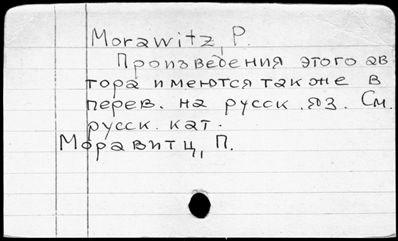 Morawitz, P.
Произведения этого ав
тора имеются также в
перев. на русск. яз. См.
русск. кат.
Моравитц, П.